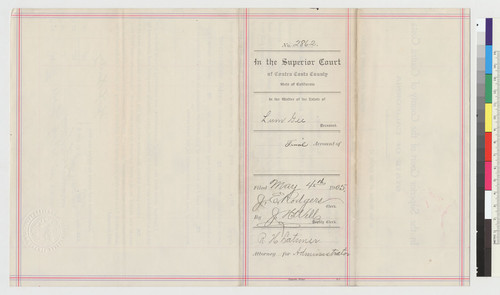 No. 2862.
In the Superior Court
of Contra Costa County
State of California
In the Matter of the Estate of
Gee
Deceased.
Final Account of
Filed May 4th
J. E. Rodgers
Clerk
By J. H. Wells
Deputy Clerk
Attorney for Administrator